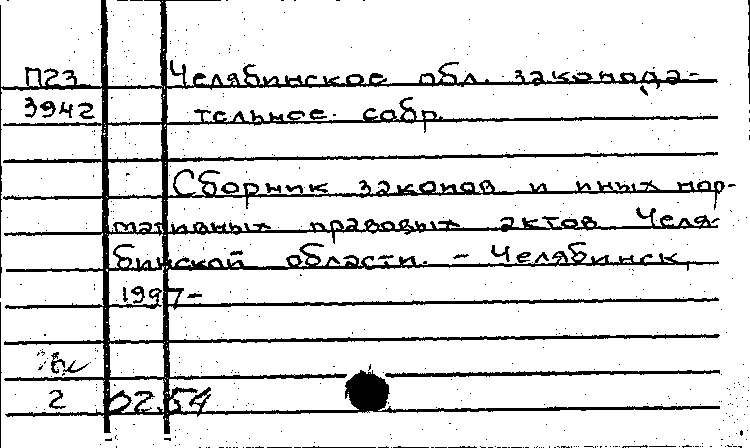 П23 Челябинское обл. законода-
3942 тельное собр.
Сборник законов и иных нор-
мативных правовых актов Челя-
бинской области. - Челябинск,
1997-
2 02.54